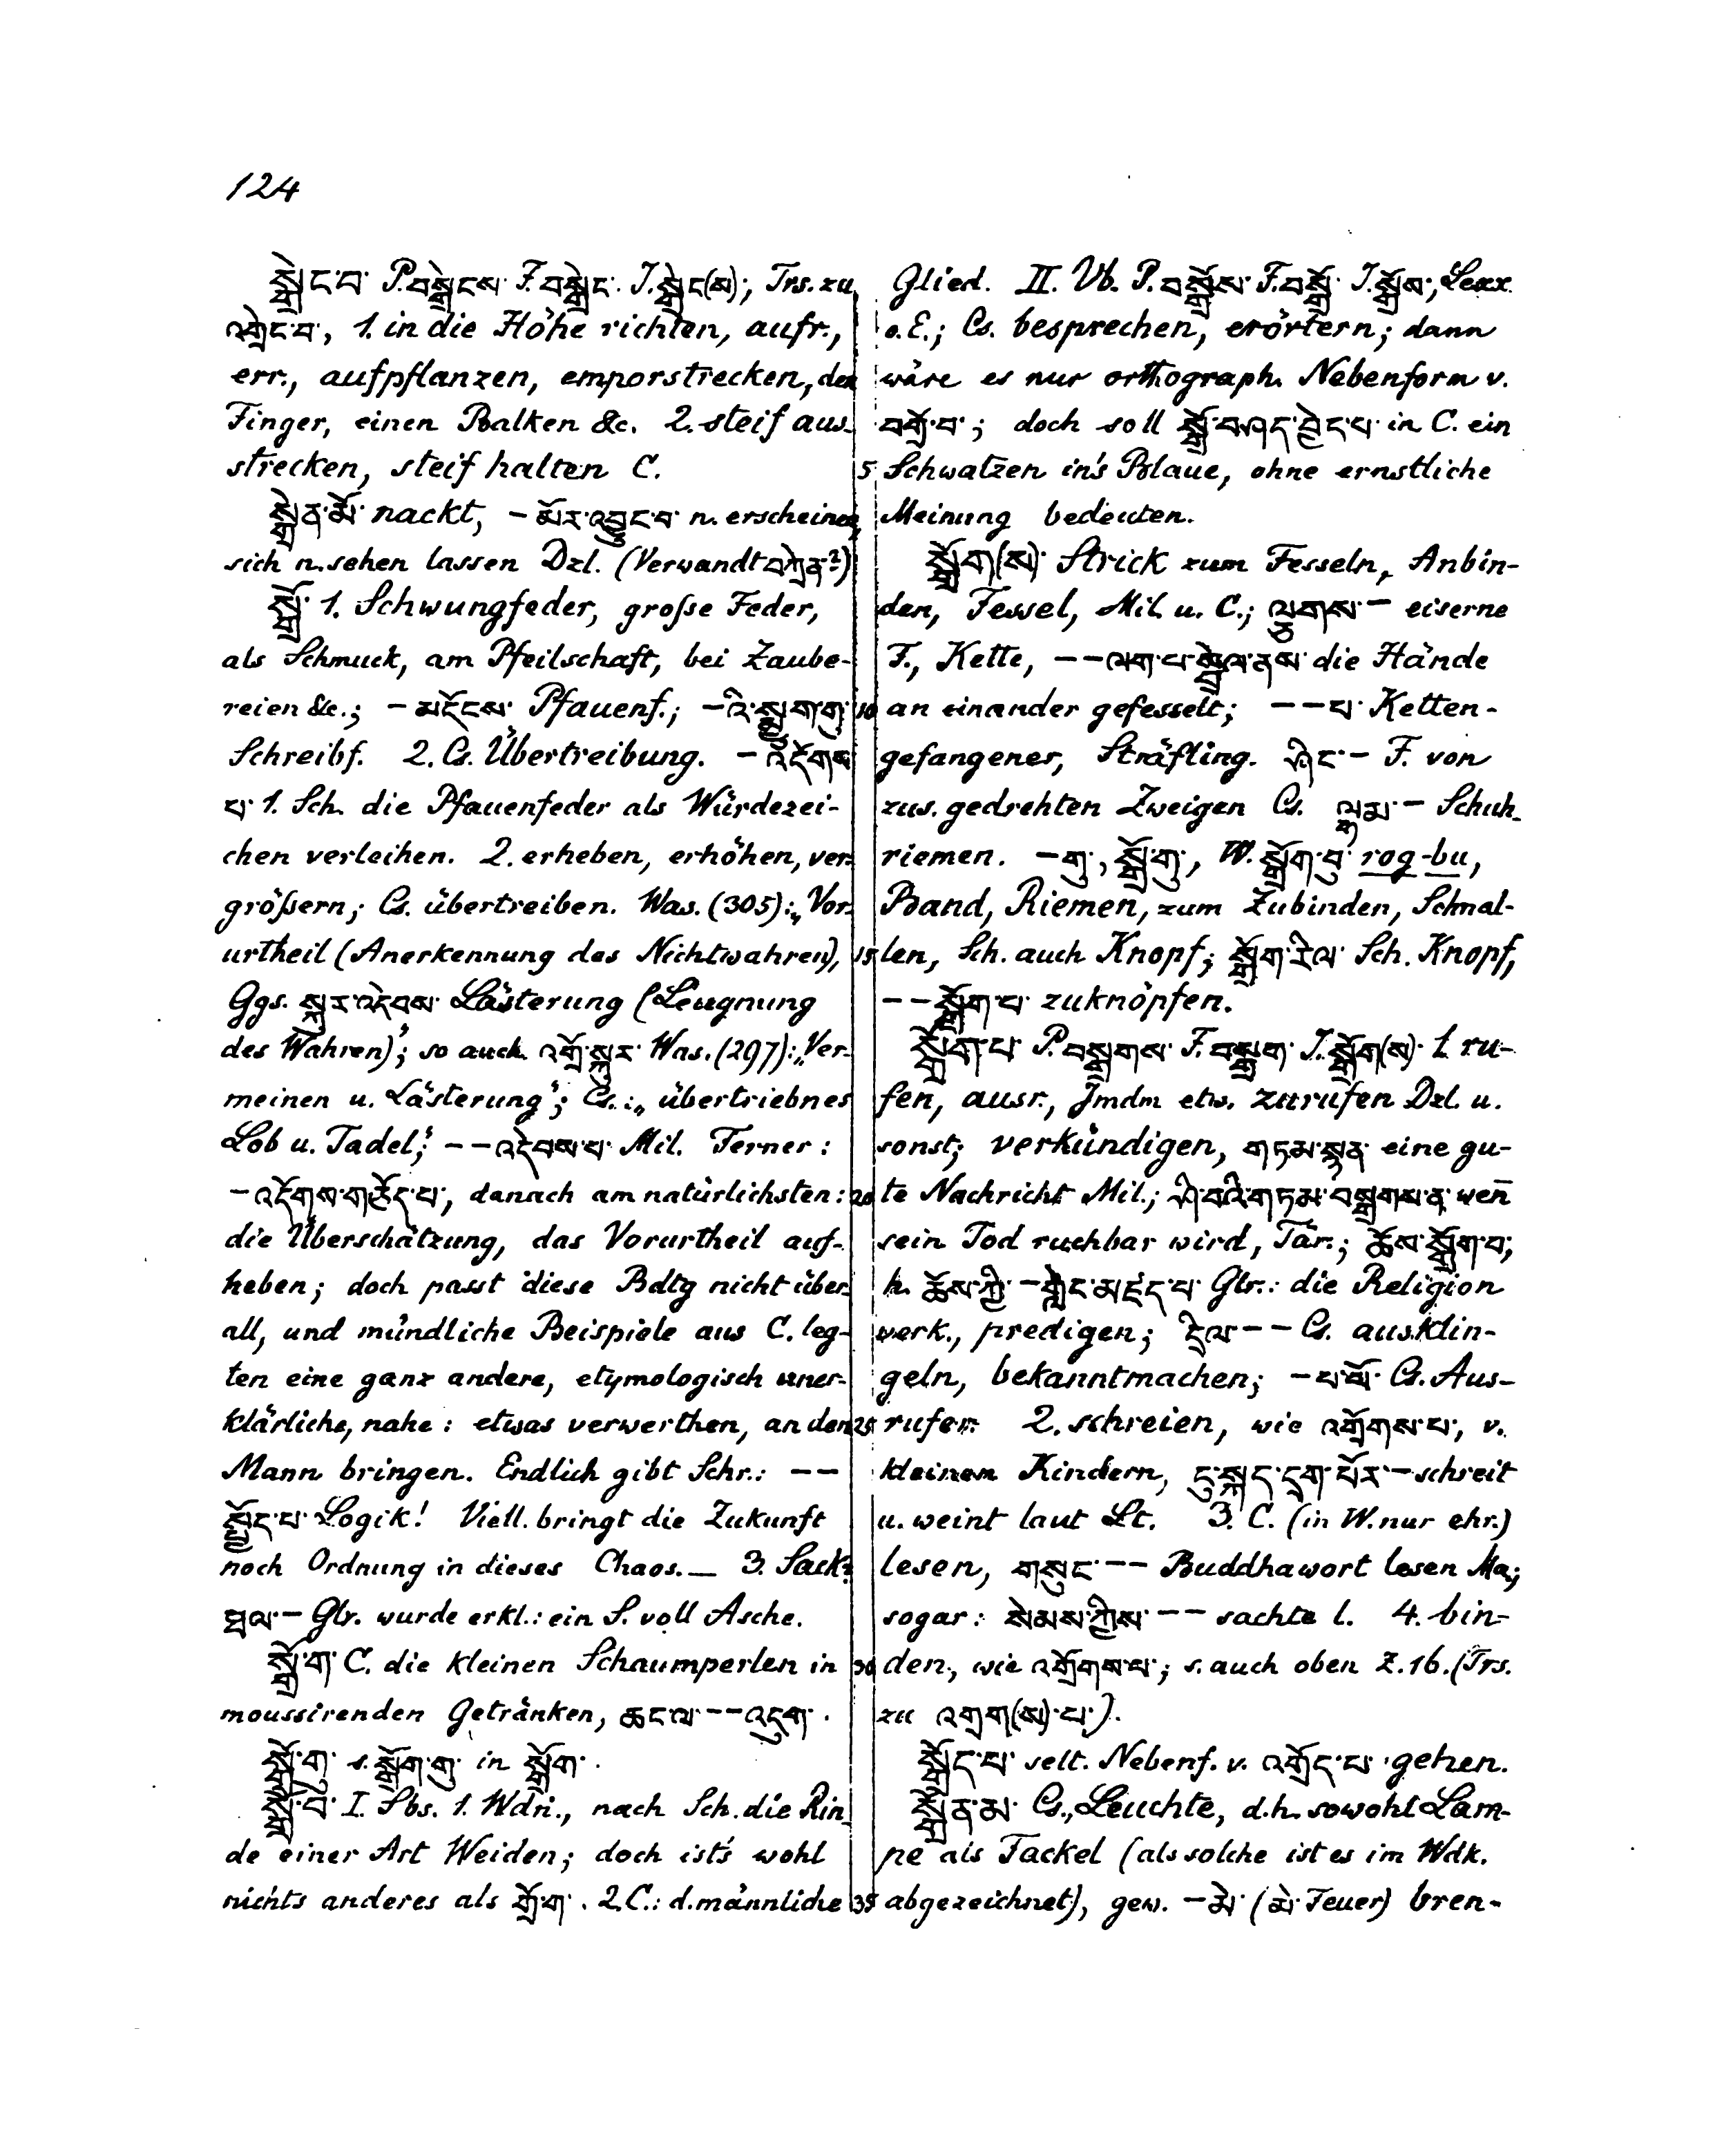 124
སྒྲེང་བ་ P.བསྒྲེངས་ F.བསྒྲེང་. I.སྒྲེང(ས)་; Trs. zu
འགྲེང་བ་, 1. in die Höhe richten, aufr.,
err., aufpflanzen, emporstrecken, den
Finger, einen Balken &c. 2. steif aus-
strecken, steif halten C.
སྒྲེན་མོ་ nackt, – མོར་འབྱུང་བ་ n. erscheinen,
sich n. sehen lassen Dzl. (Verwandt བཀྲེན་?)
སྒྲོ་ 1. Schwungfeder, große Feder,
als Schmuck, am Pfeilschaft, bei Zaube-
reien &c.; – མདོངས་ Pfauenf.; – འི་སྨྱུག་གུ་
Schreibf. 2. Cs. Übertreibung. – འདོགས་
པ་ 1. Sch. die Pfauenfeder als Würdezei-
chen verleihen. 2. erheben, erhöhen, ver-
größern; Cs. übertreiben. Was. (305): „Vor-
urtheil (Anerkennung des Nichtwahren),
Ggs. སྐུར་འདེབས་ Lästerung (Leugnung
des Wahren)“; so auch འགྲོ་སྐུར་ Was. (297): „Ver-
meinen u. Lästerung“; Cs.: „übertriebnes
Lob u. Tadel;“ – – འདེབས་པ་ Mil. Ferner:
– འདོགས་གཅོད་པ་, danach am natürlichsten:
die Überschätzung, das Vorurtheil auf-
heben; doch passt diese Bdtg nicht über-
all, und mündliche Beispiele aus C. leg-
ten eine ganz andere, etymologisch uner-
klärliche, nahe: etwas verwerthen, an den
Mann bringen. Endlich gibt Schr.: – –
སྦྱོང་པ་ Logik! Viell. bringt die Zukunft
noch Ordnung in dieses Chaos. — 3. Sack?
ཐལ་ – Glr. wurde erkl.: ein S. voll Asche.
སྒྲོ་ག་ C. die kleinen Schaumperlen in
moussirenden Getränken, ཆང་ལ་ – – འདུག་.
སྒྲོ་གུ་ s. སྒྲོག་གུ་ in སྒྲོག་.
སྒྲོ་བ་ I. Sbs. 1. Wdn., nach Sch. die Rin-
de einer Art Weiden; doch ist's wohl
nichts anderes als གྲོ་ག་. 2. C.: d. männliche
Glied. II. Vb. P. བསྒྲོས་ F. བསྒྲོ་ I. སྒྲོས་; Lexx
o. E.; Cs. besprechen, erörtern; dann
wäre es nur orthograph. Nebenform v.
བགྲོ་བ་; doch soll སྒྲོ་བཤད་བྱེད་པ་ in C. ein
5 Schwatzen in's Blaue, ohne ernstliche
Meinung bedeuten.
སྒྲོག(ས)་ Strick zum Fesseln, Anbin-
den, Fessel, Mil. u. C.; ལྕགས་ – eiserne
F., Kette, – – ལག་པ་སྦྲེལ་ནས་ die Hände
10 an einander gefesselt; – – པ་ Ketten-
gefangener, Sträfling. ཤིང་ – F. von
zus. gedrehten Zweigen Cs. ལྷམ་ – Schuh-
riemen. – གུ་, སྒྲོ་གུ་, W. སྒྲོག་བུ་ rog-bu,
Band, Riemen, zum Zubinden, Schnal-
15 len, Sch. auch Knopf; སྒྲོག་རིལ་ Sch. Knopf,
– – སྒྲོག་པ་ zuknöpfen.
སྒྲོག་པ་ P. བསྒྲགས་ F. བསྒྲག་ I. སྒྲོག(ས)་ 1. ru-
fen, ausr., Jmdm etw. zurufen Dzl. u.
sonst; verkündigen, གཏམ་སྙན་ eine gu-
20 te Nachricht Mil.; ཤི་བའི་གཏམ་བསྒྲགས་ན་ wen̄
sein Tod ruchbar wird, Tār.; ཆོས་སྒྲོག་པ་;
h. ཆོས་ཀྱི་ – གླེང་མཛད་པ་ Glr.: die Religion
verk., predigen; དྲིལ་ – – Cs. ausklin-
geln, bekanntmachen; – པ་པོ་ Cs. Aus-
25 rufer. 2. schreien, wie འགྲོགས་པ་, v.
kleinen Kindern, ངུ་སྐད་དྲག་པོར་ – schreit
u. weint laut Lt. 3. C. (in W. nur ehr.)
lesen, གསུང་ – – Buddhawort lesen Ma;
sogar: སེམས་ཀྱིས་ – – sachte l. 4. bin-
30 den, wie འགྲོགས་པ་; s. auch oben Z. 16. (Trs.
zu འགྲག(ས)་པ་).
སྒྲོང་པ་ selt. Nebenf. v. འགྲོང་པ་ gehen.
སྒྲོན་མ་ Cs., Leuchte, d.h. sowohl Lam-
pe als Fackel (als solche ist es im Wdk.
35 abgezeichnet), gew. – མེ་ (མེ་ Feuer) bren-